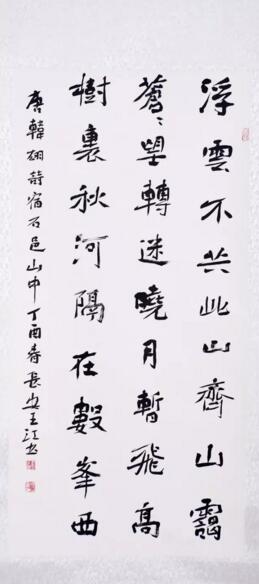 浮雲不共此山齊山靄
蒼〻望轉迷曉月暫飛高
樹裏秋河隔在數峯西
唐韓翃詩宿石邑山中丁酉春長安王江書